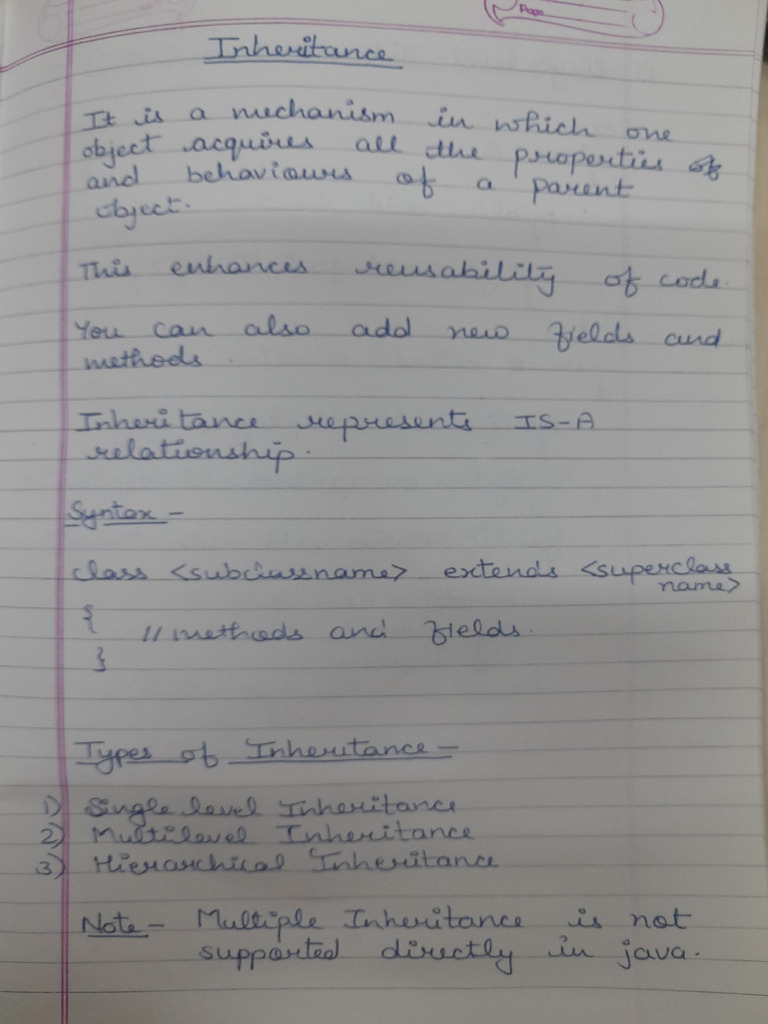 Page
Inheritance
It is a mechanism in which one
object acquires all the properties
and behaviours of a parent
object.
This enhances reusability of code.
You can also add new fields and
methods.
Inheritance represents IS-A
relationship.
Syntax -
class <subclassname> extends <superclass
name>
{
// methods and fields.
}
Types of Inheritance -
1) Single level Inheritance
2) Multilevel Inheritance
3) Hierarchical Inheritance
Note - Multiple Inheritance is not
supported directly in java.